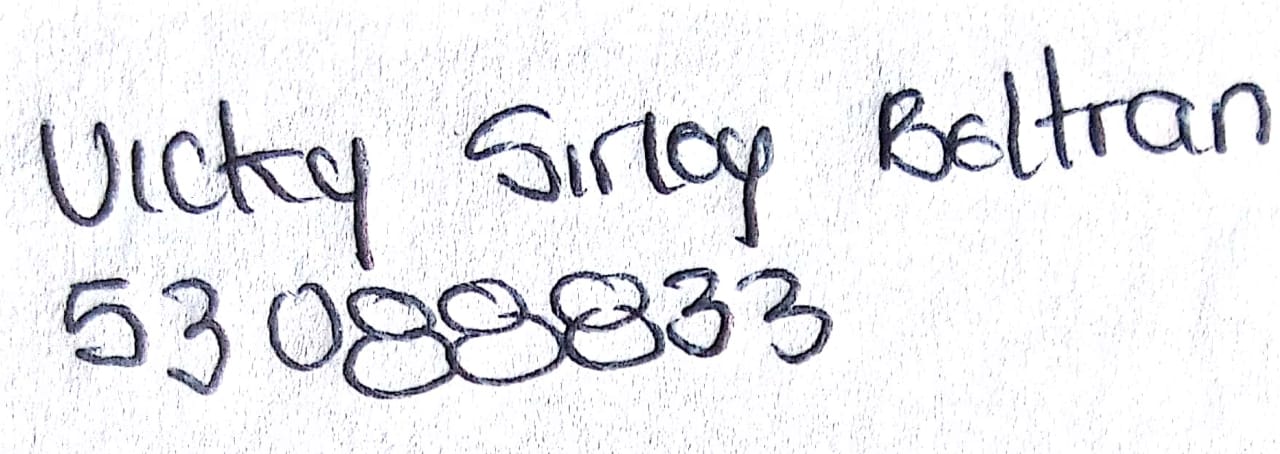 Vicky Sirley Beltran
53088833